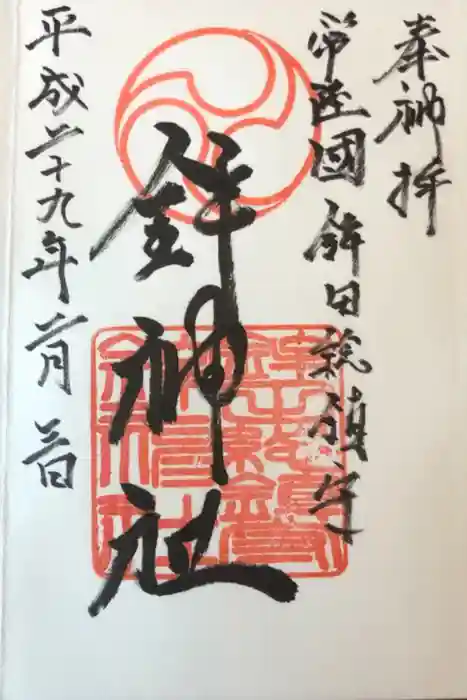 奉拝
常陸國 鉾田総鎮守
鉾神社
平成二十九年二月二日